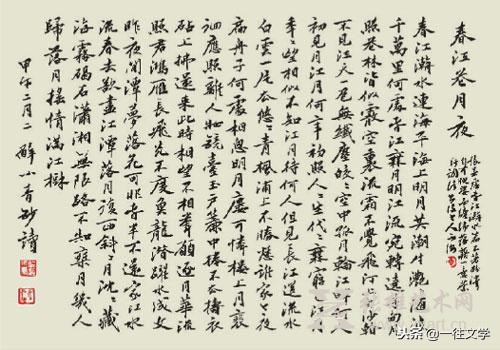 春江花月夜
春江潮水連海平海上明月共潮生灧灧隨波
千萬里何處春江無月明江流宛轉遶芳甸月
照花林皆似霰空裏流霜不覺飛汀上白沙看
不見江天一色無纖塵皎皎空中孤月輪江畔何人
初見月江月何年初照人人生代代無窮已江月
年年望相似不知江月待何人但見長江送流水
白雲一片去悠悠青楓浦上不勝愁誰家今夜
扁舟子何處相思明月樓可憐樓上月裴
徊應照離人妝鏡臺玉戶簾中捲不去擣衣
砧上拂還來此時相望不相聞願逐月華流
照君鴻雁長飛光不度魚龍潛躍水成文
昨夜閒潭夢落花可憐春半不還家江水
流春去欲盡江潭落月復西斜斜月沈沈藏
海霧碣石瀟湘無限路不知乘月幾人
歸落月搖情滿江樹
甲午二月二 解小青抄讀
头条@一往文学